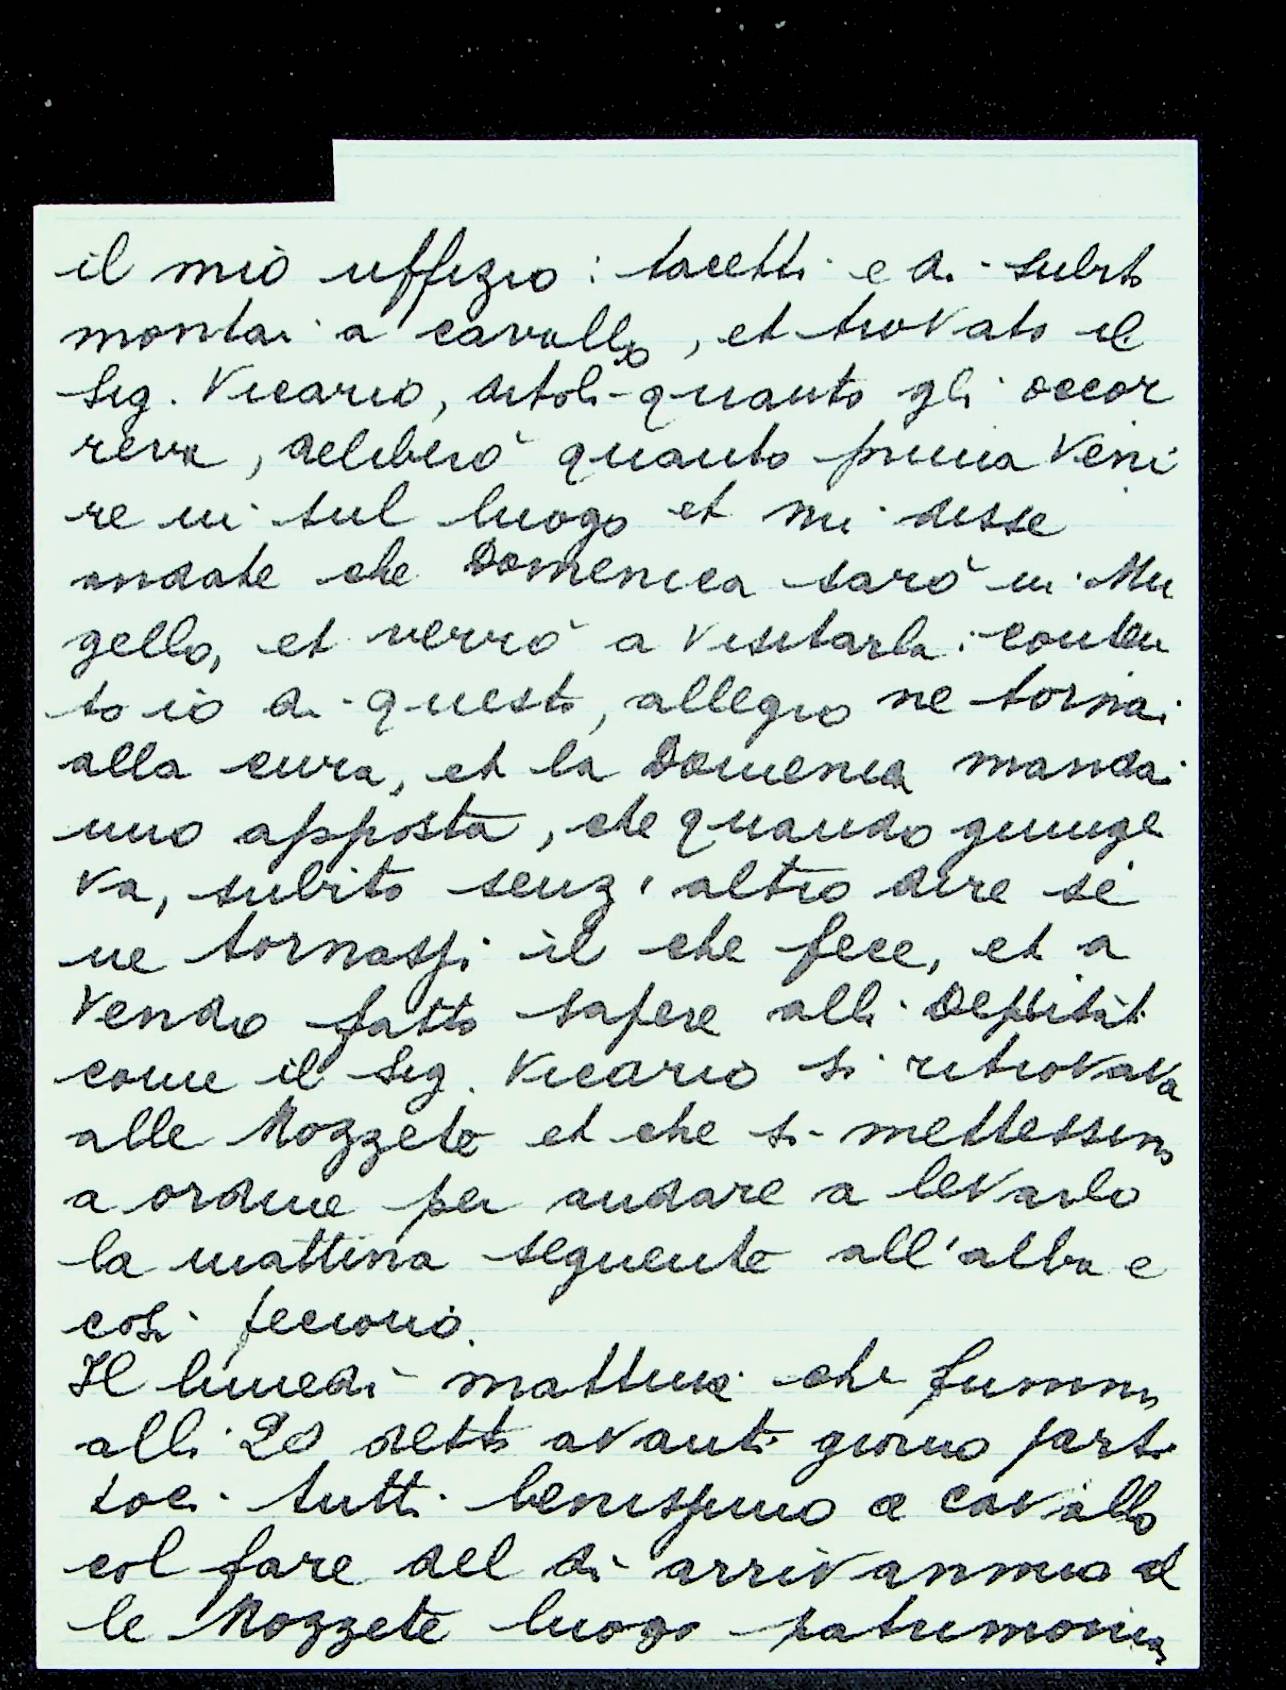 il mio uffizio: tacetti e di subito
montai a cavallo, et trovato il
Sig. Vicario, ditoli quanto gli occor
reva, deliberò quanto prima veni
re in sul luogo et mi disse
andate che Domenica sarò in Mu
gello, et verrò a visitarla: conten
to io di questo, allegro ne tornai
alla cura, et la Domenica mandai
uno apposta, che quando giunge
va, subito senz'altro dire se
ne tornassi il che fece, et a
vendo fatto sapere alli Deputati
come il Sig. Vicario si ritrovava
alle Mozzete et che si mettessino
a ordine per andare a levarlo
la mattina seguente all'alba e
così feciono.
Il lunedì mattina che fummo
alli 20 detto avanti giorno parti
toci tutti benissimo a cavallo
col fare del dì arrivammo al
le Mozzete luogo patrimonia